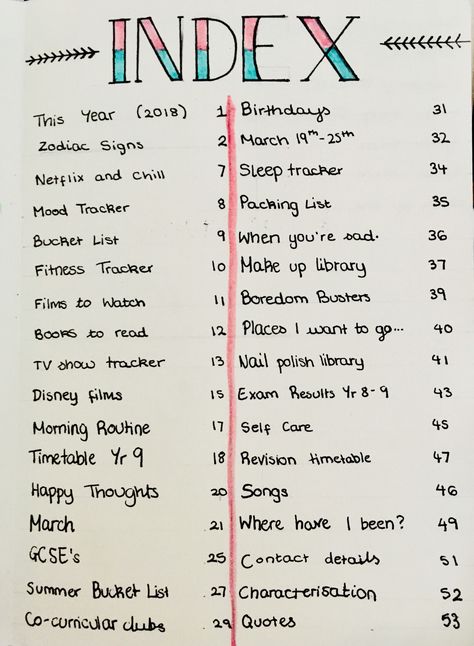 INDEX
This Year (2018) 1
Zodiac Signs 2
Netflix and chill 7
Mood Tracker 8
Bucket List 9
Fitness Tracker 10
Films to Watch 11
Books to read 12
TV show tracker 13
Disney films 15
Morning Routine 17
Timetable Yr 9 18
Happy Thoughts 20
March 21
GCSE's 25
Summer Bucket List 27
Co-curricular clubs 29
Birthdays 31
March 19th-25th 32
Sleep tracker 34
Packing List 35
When you're sad. 36
Make up library 37
Boredom Busters 39
Places I want to go... 40
Nail polish library 41
Exam Results Yr 8-9 43
Self Care 45
Revision timetable 47
Songs 46
Where have I been? 49
Contact details 51
Characterisation 52
Quotes 53